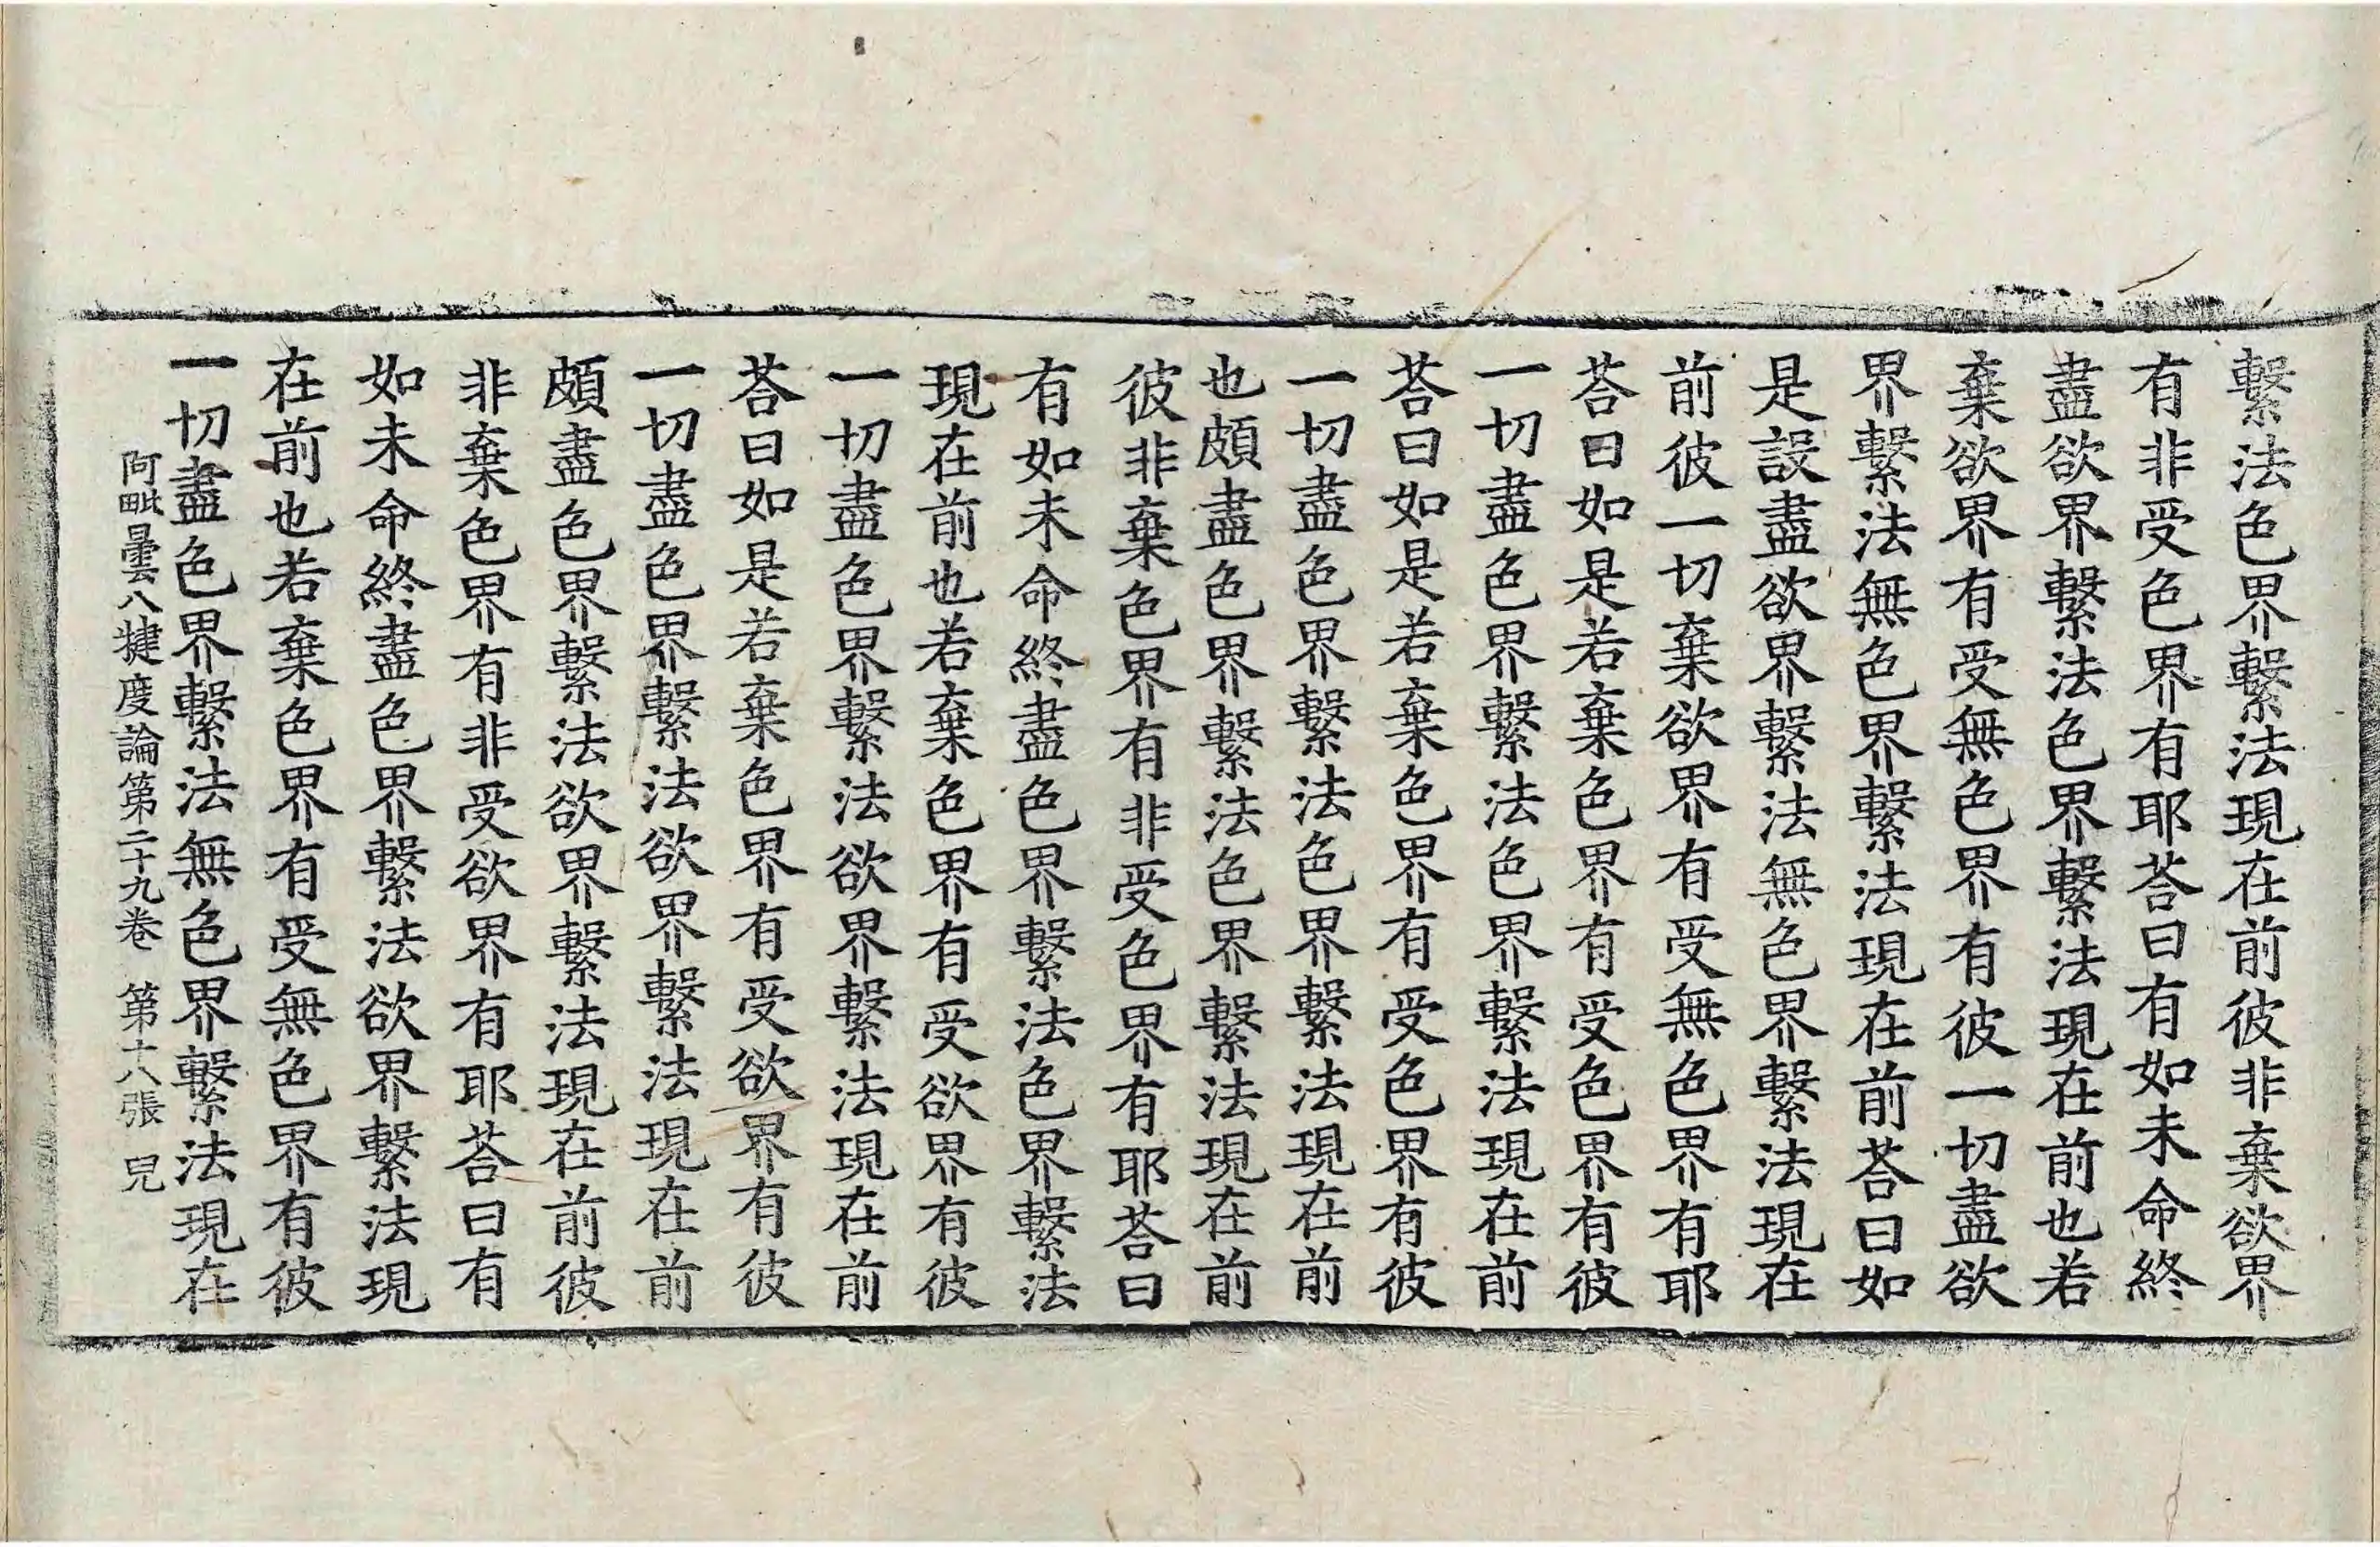 繫法色界繫法現在前彼非棄欲界
有非受色界有耶荅曰有如未命終
盡欲界繫法色界繫法現在前也若
棄欲界有受無色界有彼一切盡欲
界繫法無色界繫法現在前荅曰如
是設盡欲界繫法無色界繫法現在
前彼一切棄欲界有受無色界有耶
荅曰如是若棄色界有受色界有彼
一切盡色界繫法色界繫法現在前
荅曰如是若棄色界有受色界有彼
一切盡色界繫法色界繫法現在前
也頗盡色界繫法色界繫法現在前
彼非棄色界有非受色界有耶荅曰
有如未命終盡色界繫法色界繫法
現在前也若棄色界有受欲界有彼
一切盡色界繫法欲界繫法現在前
荅曰如是若棄色界有受欲界有彼
一切盡色界繫法欲界繫法現在前
頗盡色界繫法欲界繫法現在前彼
非棄色界有非受欲界有耶荅曰有
如未命終盡色界繫法欲界繫法現
在前也若棄色界有受無色界有彼
一切盡色界繫法無色界繫法現在
阿毗曇八犍度論第二十九卷 第十八張 兒